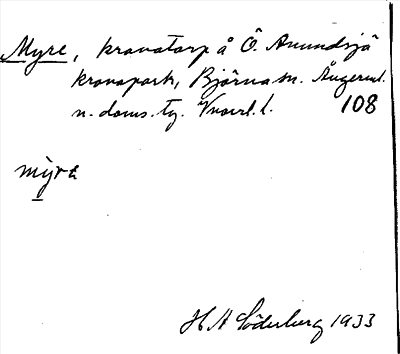 Myre, kronotorp å Ö. Anundsjö
kronopark, Björna sn. Ångerml.
n. doms. tg. Vnorrl. l. 108
mỳra
H A Söderberg 1933